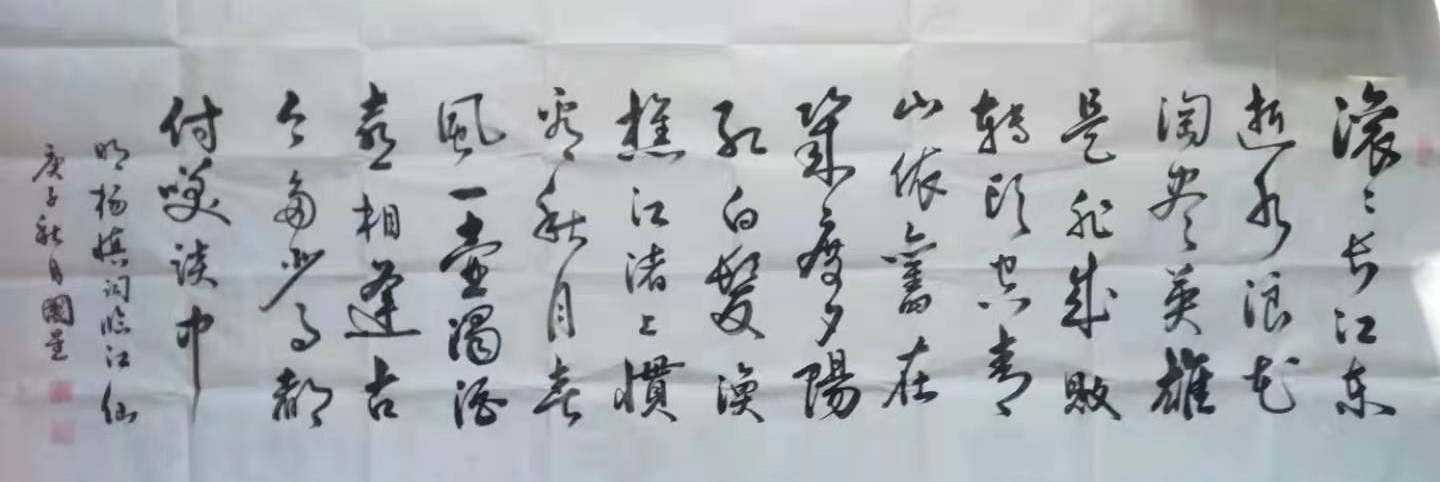 滚〻长江东
逝水浪花
淘尽英雄
是非成败
转头空青
山依旧在
几度夕陽
红白髮渔
樵江渚上惯
看秋月春
風一壶濁酒
喜相逢古
今多少事都
付笑谈中
明杨慎词临江仙
庚子秋月國星